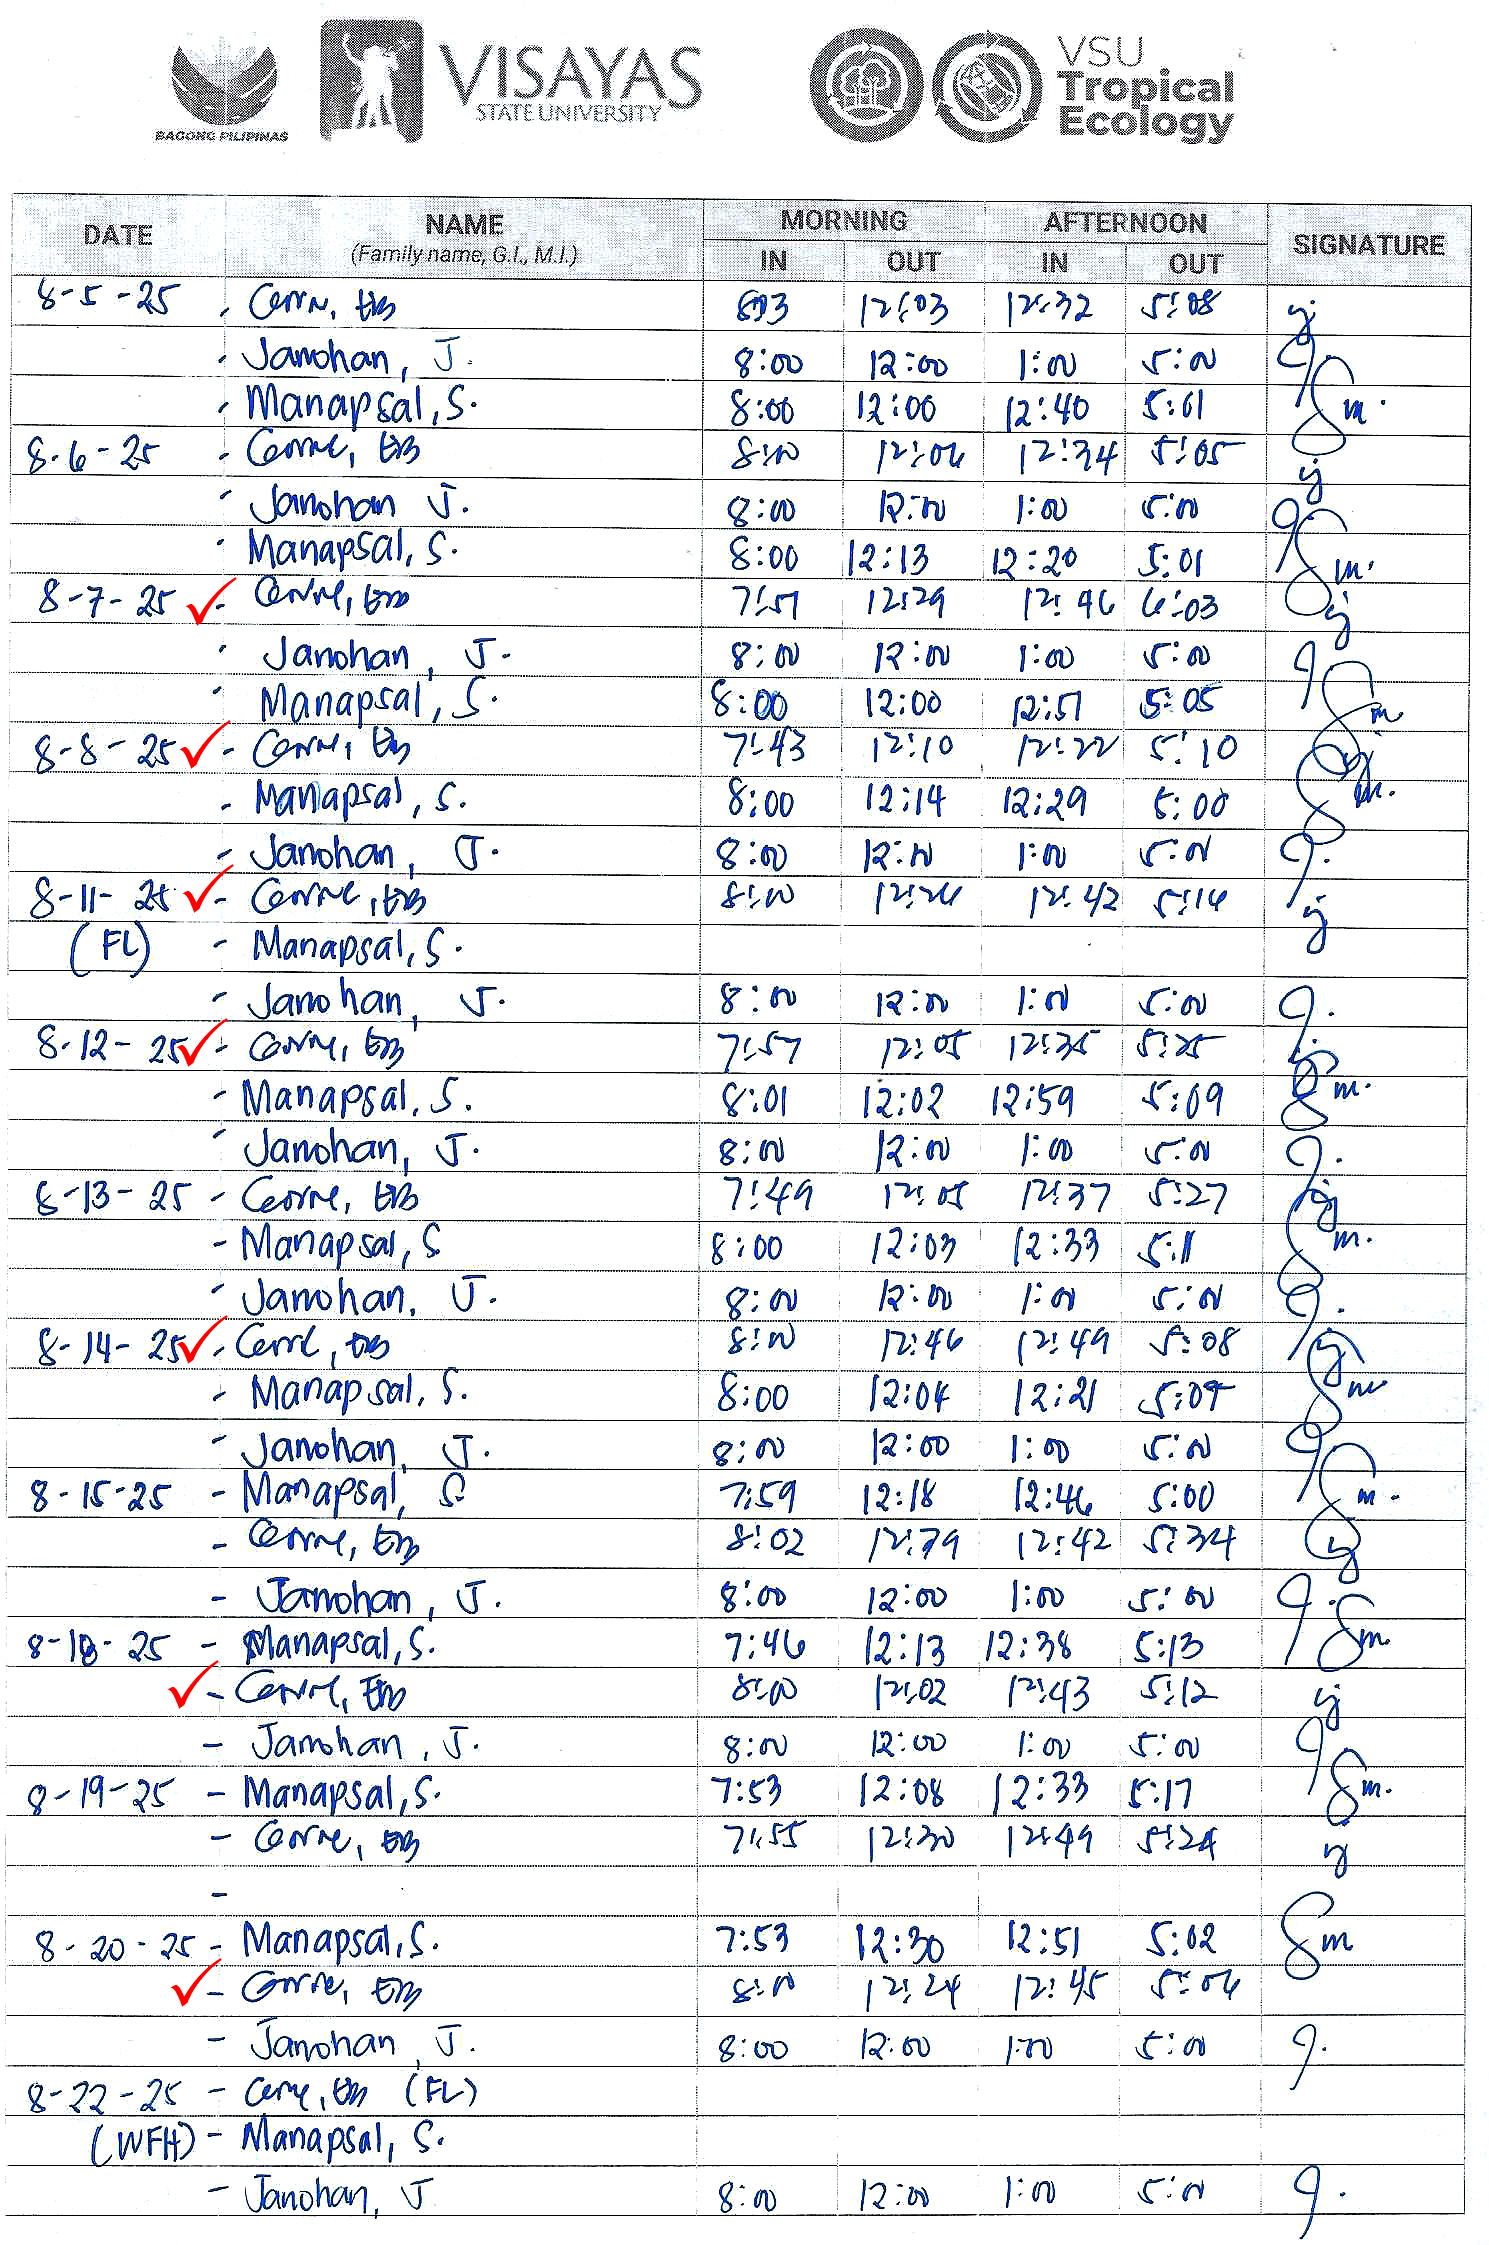 BAGONG PILIPINAS
VISAYAS
STATE UNIVERSITY
VSU
Tropical
Ecology
DATE NAME (Family name, G.I., M.I.) MORNING AFTERNOON SIGNATURE
IN OUT IN OUT
8-5-25 - 12:03 12:32 5:08
- Janohan, J. 8:00 12:00 1:00 5:00
- Manapsal, S. 8:00 12:00 12:40 5:01 Sm.
8-6-25 - 8:00 12:06 12:34 5:05
- Janohan J. 8:00 12:00 1:00 5:00
- Manapsal, S. 8:00 12:13 12:20 5:01 Sm.
8-7-25 - 7:51 12:29 12:46 6:03
- Janohan, J. 8:00 12:00 1:00 5:00
- Manapsal, S. 8:00 12:00 12:51 5:05 Sm
8-8-25 - 7:43 12:10 12:22 5:10
- Manapsal, S. 8:00 12:14 12:29 5:00 Sm.
- Janohan, J. 8:00 12:00 1:00 5:00
8-11-25 - 8:00 12:26 12:42 5:16
(FL) - Manapsal, S.
- Janohan, J. 8:00 12:00 1:00 5:00
8-12-25 - 7:57 12:05 12:35 5:25
- Manapsal, S. 8:01 12:02 12:59 5:09 Sm.
- Janohan, J. 8:00 12:00 1:00 5:00
8-13-25 - 7:49 12:05 12:37 5:27
- Manapsal, S 8:00 12:03 12:33 5:11 Sm.
- Janohan, J. 8:00 12:00 1:00 5:00
8-14-25 - 8:00 12:46 12:49 5:08
- Manapsal, S. 8:00 12:04 12:21 Sm
- Janohan, J. 8:00 12:00 1:00 5:00
8-15-25 - Manapsal, S 7:59 12:18 12:46 5:00 Sm.
- 8:02 12:42 5:34
- Janohan, J. 8:00 12:00 1:00 5:00
8-18-25 - Manapsal, S. 7:46 12:13 12:38 5:13 Sm
- 8:00 12:02 12:43 5:12
- Janohan, J. 8:00 12:00 1:00 5:00
8-19-25 - Manapsal, S. 7:53 12:08 12:33 5:17 Sm.
- 7:55 12:30 12:49 5:24
-
8-20-25 - Manapsal, S. 7:53 12:30 12:51 5:02 Sm
- 8:00 12:24 12:45 5:06
- Janohan, J. 8:00 12:00 1:00 5:00
8-22-25 - (FL)
(WFH) - Manapsal, S.
- Janohan, J 8:00 12:00 1:00 5:00